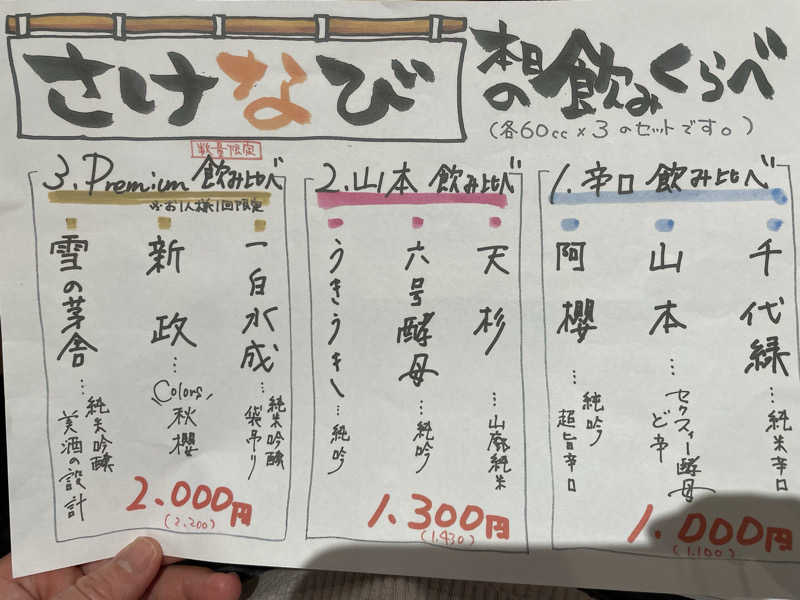 さけなび
本日の飲みくらべ
(各60cc×3のセットです。)
1.辛口 飲み比べ
千代緑…純米辛口
山本…セクスィー酵母
ど辛
阿櫻…純吟
超旨辛口
1.000円
(1.100)
2.山本 飲み比べ
天杉…山廃純米
六号酵母…純吟
うきうき…純吟
1.300円
(1.430)
数量限定
3.Premium 飲み比べ
※お1人様1回限定
一白水成…純米吟醸
袋吊り
新政…Colors
秋櫻
雪の茅舎…純米吟醸
美酒の設計
2.000円
(2.200)